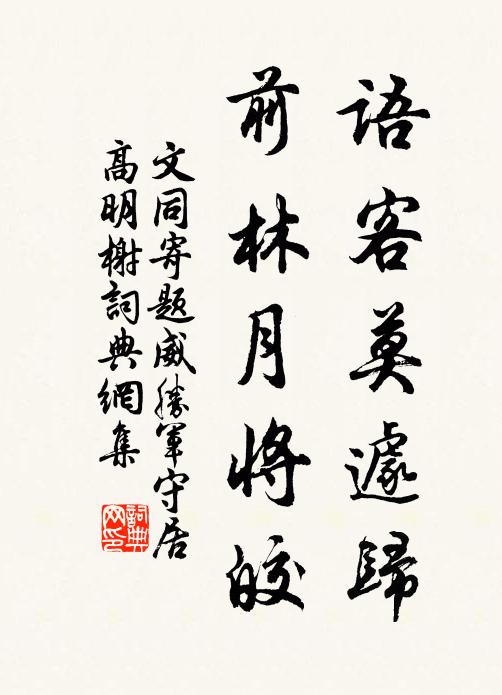 語客莫遽歸
前林月將皎
文同寄題威勝軍守居
高明榭詞典網集
詞典网印